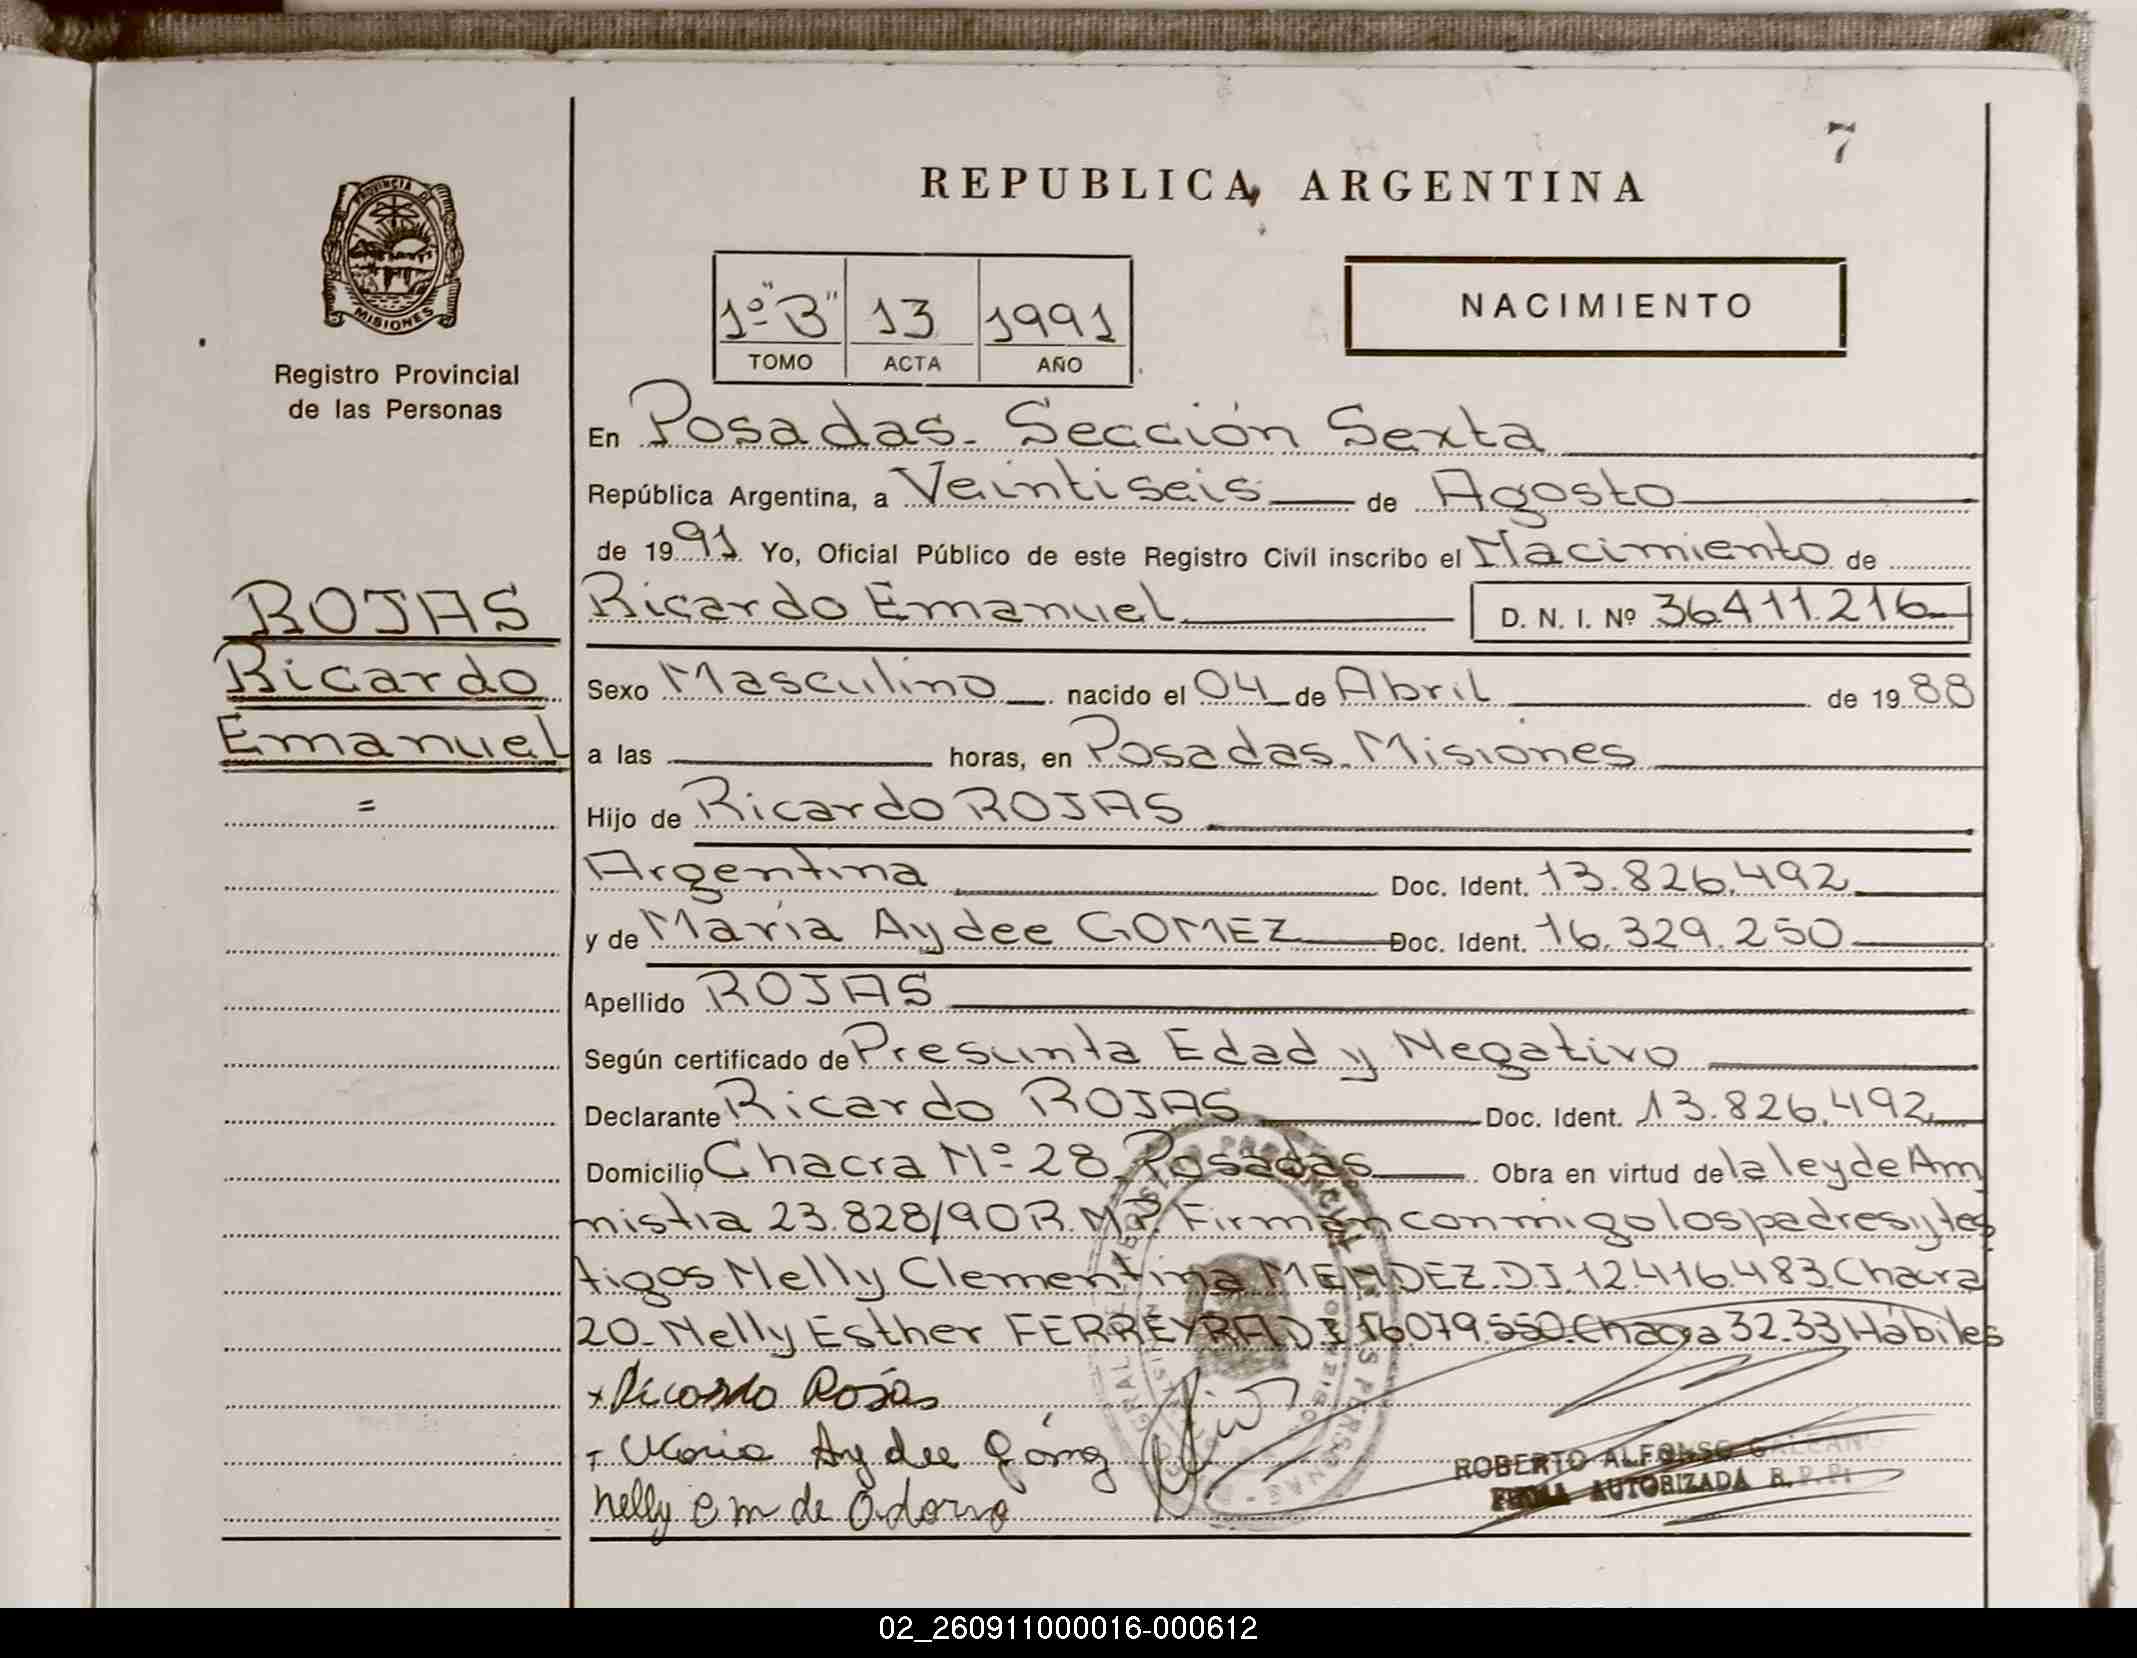 7
REPUBLICA ARGENTINA
PROVINCIA DE
MISIONES
Registro Provincial
de las Personas
1º "B" 13 1991
TOMO ACTA AÑO
NACIMIENTO
En Posadas. Sección Sexta
República Argentina, a Veintiseis de Agosto
de 1991 Yo, Oficial Público de este Registro Civil inscribo el Nacimiento de
ROJAS
Ricardo
Emanuel
=
Ricardo Emanuel D. N. I. Nº 36.411.216
Sexo Masculino nacido el 04 de Abril de 1988
a las horas, en Posadas. Misiones
Hijo de Ricardo ROJAS
Argentina Doc. Ident. 13.826.492
y de María Aydee GOMEZ Doc. Ident. 16.329.250
Apellido ROJAS
Según certificado de Presunta Edad y Negativo
Declarante Ricardo ROJAS Doc. Ident. 13.826.492
Domicilio Chacra Nº 28 Posadas Obra en virtud de la ley de Am
nistia 23.828/90 R.M.P. Firman conmigo los padres y tes
tigos Nelly Clementina MENDEZ. D.I. 12.416.483. Chacra
20. Nelly Esther FERREYRA D.I. 16.079.550. Chacra 32.33 Hábiles
x Ricardo Rojas
Maria Aydee
Nelly C m de
ROBERTO ALFONSO GALEANO
FIRMA AUTORIZADA R. P. P.
02_260911000016-000612